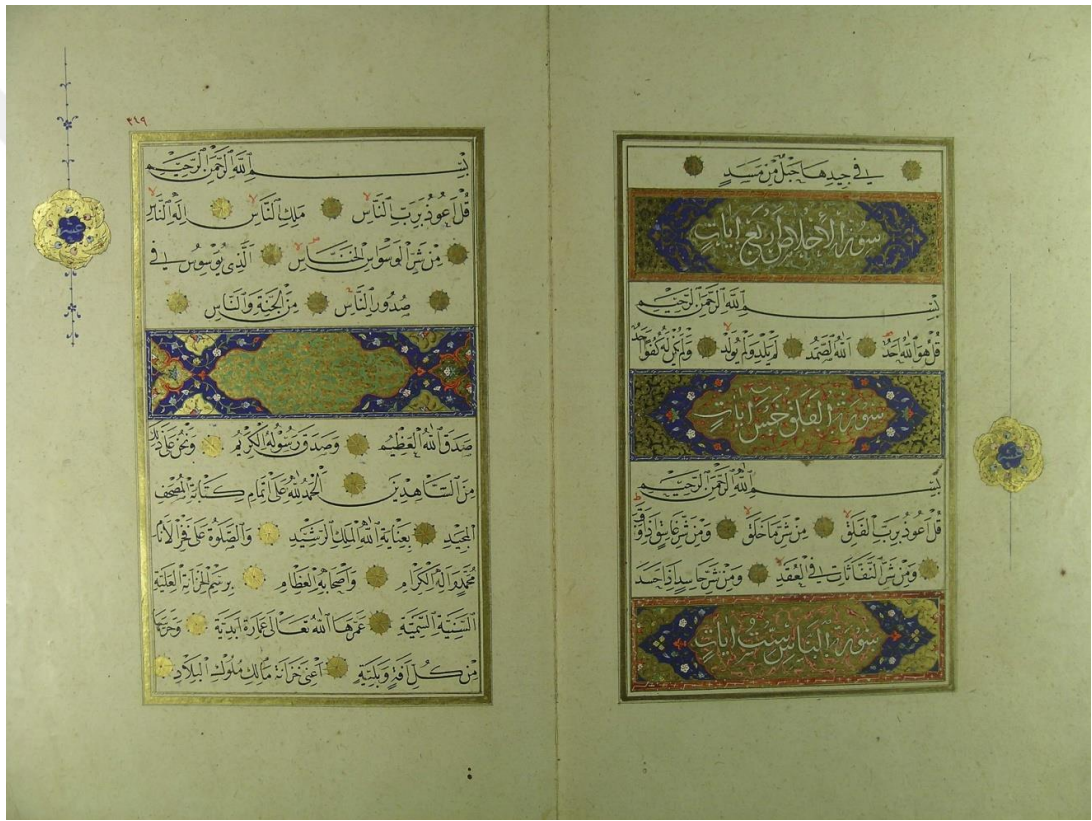 في جيدها حبل من مسد
سورة الاخلاص اربع ايات
بسم الله الرحمن الرحيم
قل هو الله احد الله الصمد لم يلد ولم يولد ولم يكن له كفوا احد
سورة الفلق خمس ايات
بسم الله الرحمن الرحيم
قل اعوذ برب الفلق من شر ما خلق ومن شر غاسق اذا وقب
ومن شر النفاثات في العقد ومن شر حاسد اذا حسد
سورة الناس ست ايات
٣١٩
بسم الله الرحمن الرحيم
قل اعوذ برب الناس ملك الناس اله الناس
من شر الوسواس الخناس الذي يوسوس في
صدور الناس من الجنة والناس
صدق الله العظيم وصدق رسوله الكريم ونحن على ذلك
من الشاهدين الحمد لله على اتمام كتابة المصحف
المجيد بعناية الله الملك الرشيد والصلوة على فخر الانام
محمد واله الكرام واصحابه العظام برسم الخزانة العلية
السنية عمرها الله تعالى عمارة ابدية وحرسها
من كل افة وبلية اعني خزانة مالك ملوك البلاد